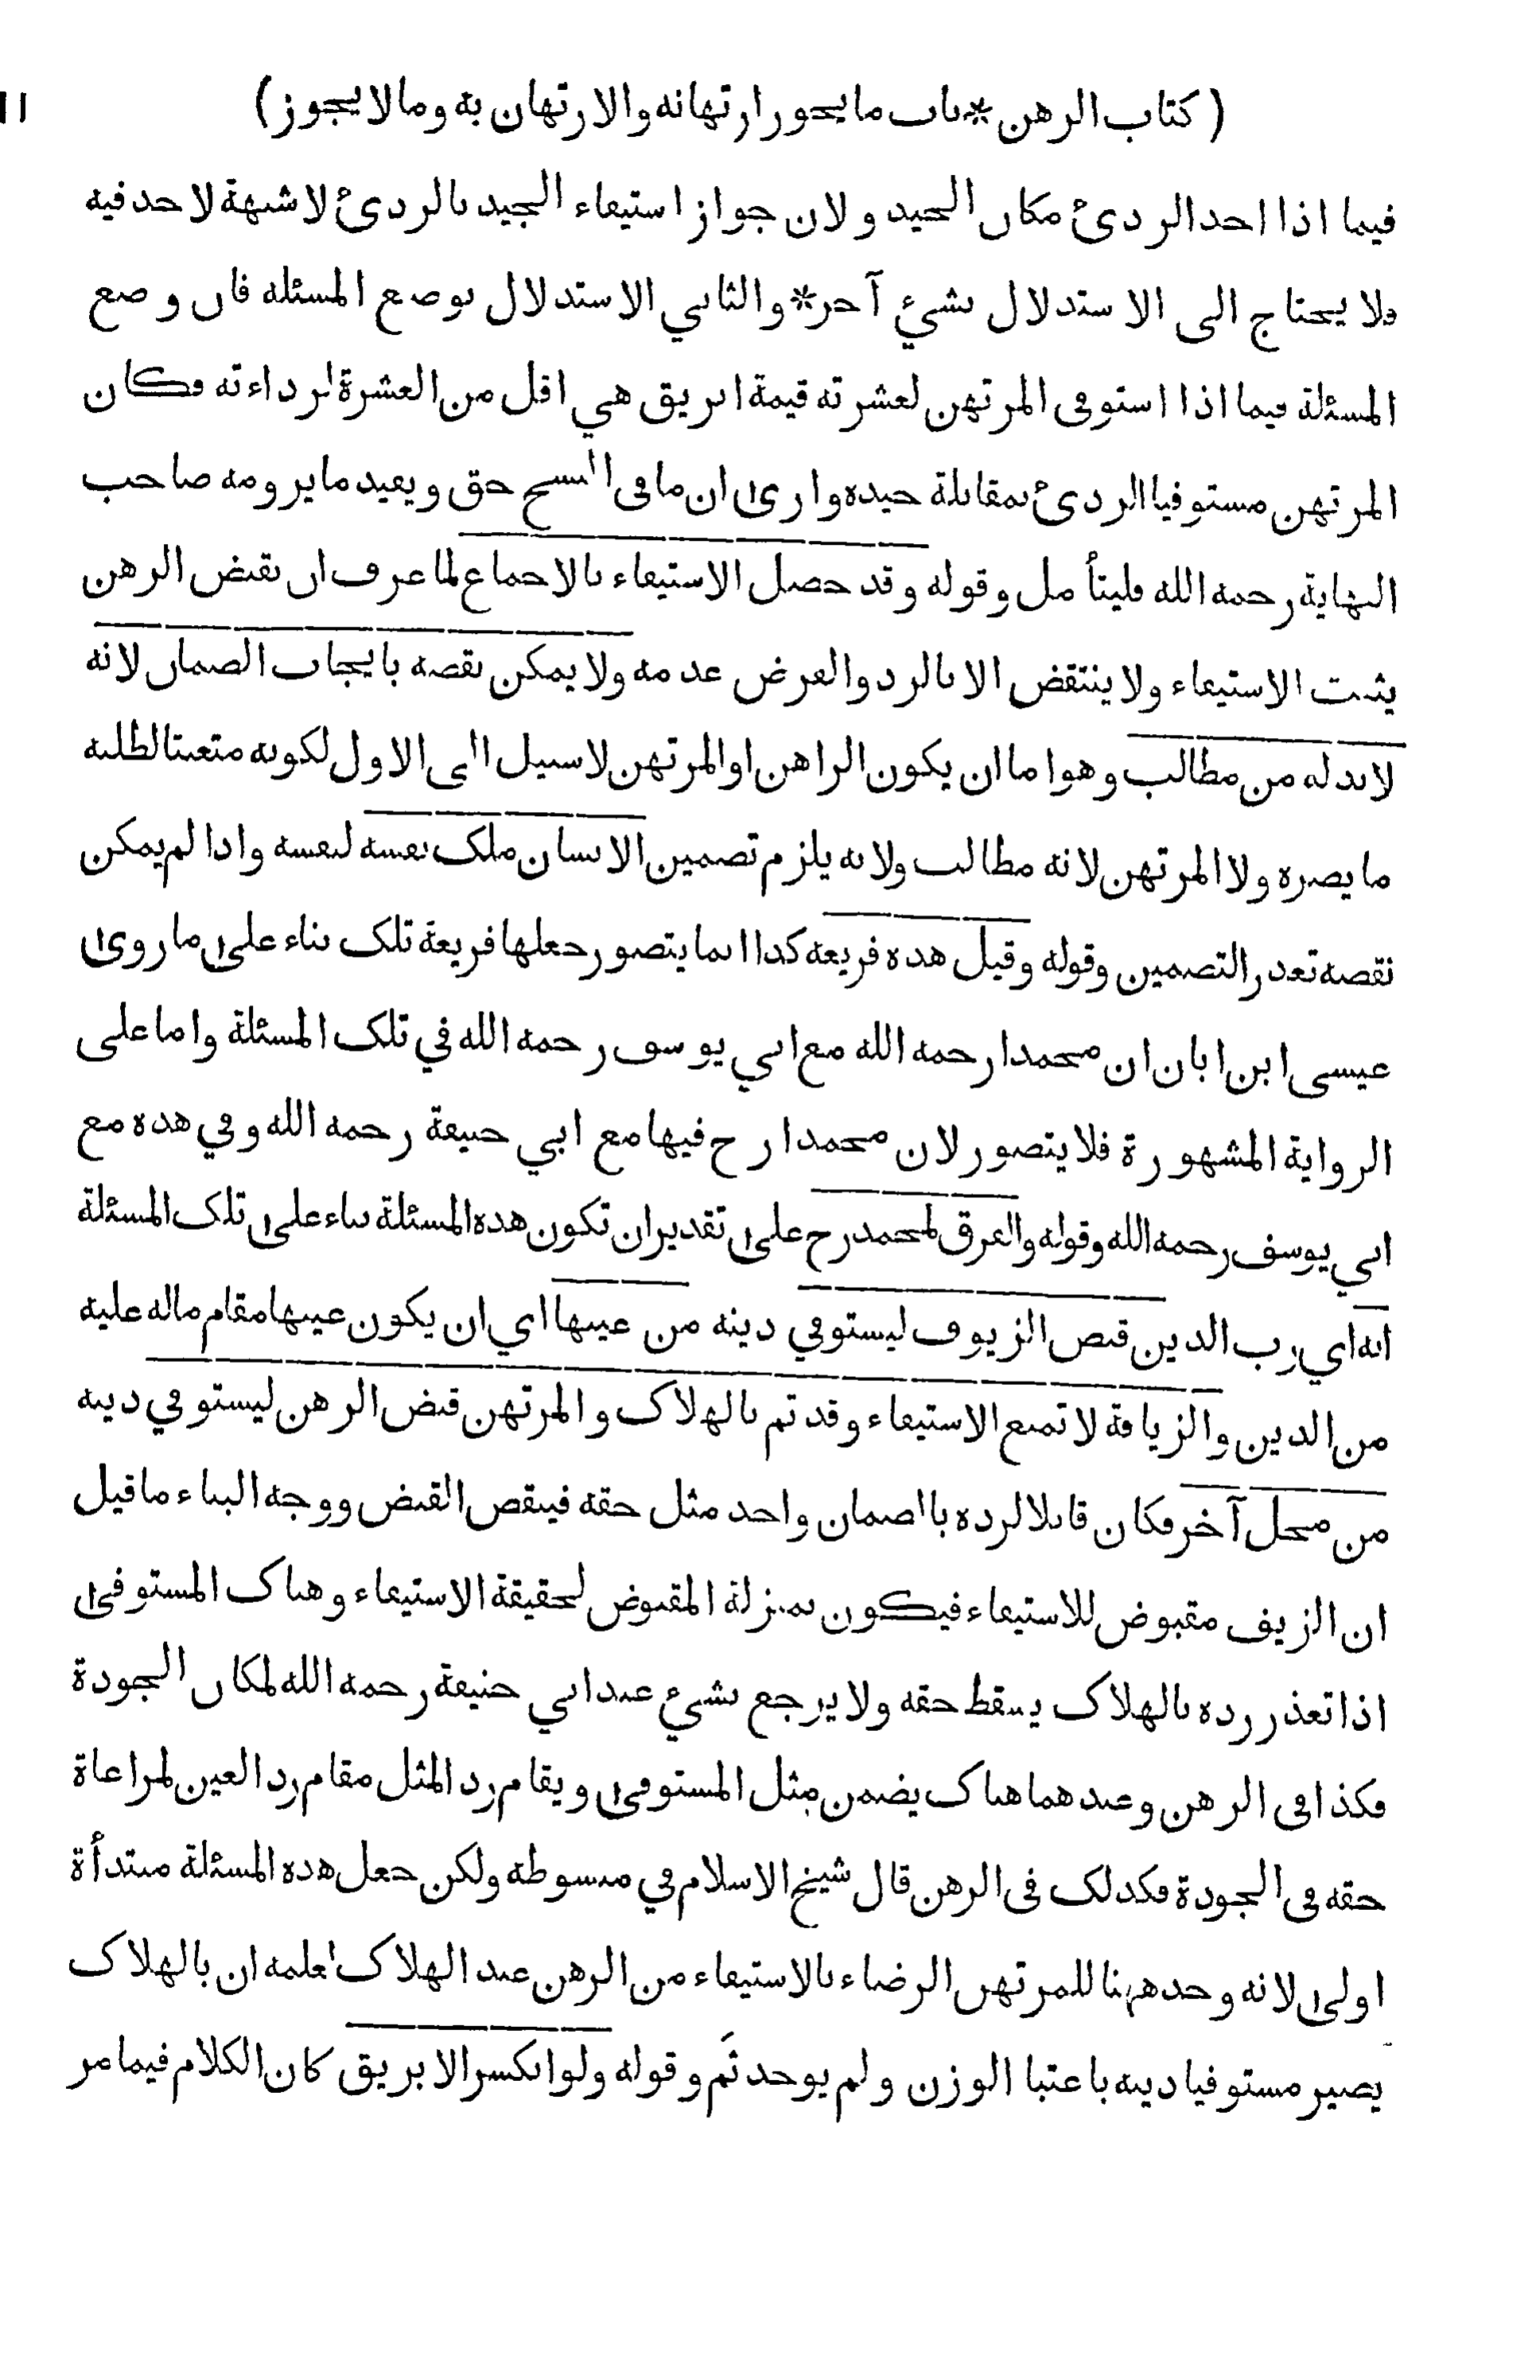 ( كتاب الرهن * باب ما يجوز ارتهانه والارتهان به وما لا يجوز )
١١
فيما اذا اخذ الردئ مكان الجيد ولان جواز استيفاء الجيد بالردئ لا شبهة لاحد فيه
ولا يحتاج الى الاستدلال بشيء آخر * والثاني الاستدلال بوضع المسئله فان وضع
المسئلة فيما اذا استوفى المرتهن لعشرته قيمة ابريق هي اقل من العشرة لرداءته فكان
المرتهن مستوفيا الردئ بمقابلة جيده وارى ان ما في النسخ حق ويفيد ما يرومه صاحب
النهاية رحمه الله فليتأمل وقوله وقد حصل الاستيفاء بالاجماع لما عرف ان بقبض الرهن
يثبت الاستيفاء ولا ينتقض الا بالرد والفرض عدمه ولا يمكن نقضه بايجاب الضمان لانه
لابد له من مطالب وهو اما ان يكون الراهن او المرتهن لا سبيل الى الاول لكونه متعنتا لطلبه
ما يضره ولا المرتهن لانه مطالب ولانه يلزم تضمين الانسان ملك نفسه لنفسه واذا لم يمكن
نقضه تعذر التضمين وقوله وقيل هذه فريعه كذا انما يتصور جعلها فريعة تلك بناء على ما روى
عيسى ابن ابان ان محمدا رحمه الله مع ابي يوسف رحمه الله في تلك المسئلة واما على
الرواية المشهورة فلا يتصور لان محمدا رح فيها مع ابي حنيفة رحمه الله وفي هذه مع
ابي يوسف رحمه الله وقوله والفرق لمحمد رح على تقدير ان تكون هذه المسئلة بناء على تلك المسئلة
انه اي رب الدين قبض الزيوف ليستوفي دينه من عينها اي ان يكون عينها مقام ماله عليه
من الدين والزيافة لا تمنع الاستيفاء وقد تم بالهلاك والمرتهن قبض الرهن ليستوفي دينه
من محل آخر فكان قابلا لرده بالضمان واحد مثل حقه فينقض القبض ووجه البناء ما قيل
ان الزيف مقبوض للاستيفاء فيكون بمنزلة المقبوض لحقيقة الاستيفاء وهناك المستوفى
اذا تعذر رده بالهلاك يسقط حقه ولا يرجع بشيء عند ابي حنيفة رحمه الله لمكان الجودة
فكذا في الرهن وعندهما هناك يضمن مثل المستوفى ويقام رد المثل مقام رد العين لمراعاة
حقه في الجودة فكذلك في الرهن قال شيخ الاسلام في مبسوطه ولكن جعل هذه المسئلة مبتدأة
اولى لانه وجد ههنا للمرتهن الرضاء بالاستيفاء من الرهن عند الهلاك لعلمه ان بالهلاك
يصير مستوفيا دينه باعتبا الوزن ولم يوجد ثم وقوله ولو انكسر الابريق كان الكلام فيما مر